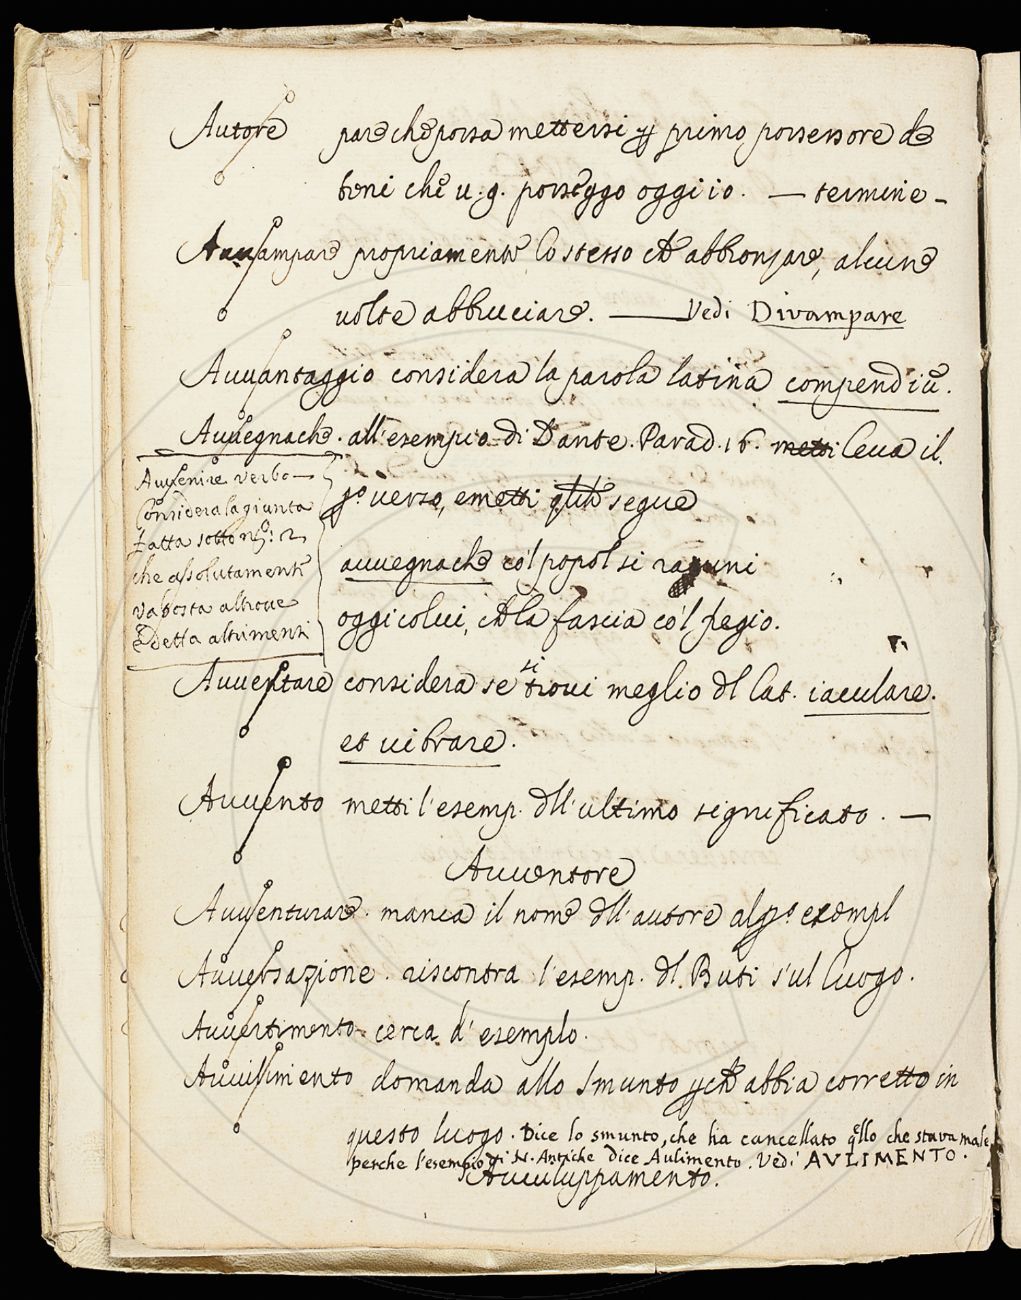 Autore pare che possa mettersi p primo possessore de
beni che u.g. posseggo oggi io. — termine -
Auuampare propriamente lo stesso che abbronzare, alcune
uolte abbruciare. — Vedi Divampare
Auuantaggio considera la parola latina compendiũ.
Auuegnache. all'esempio di Dante. Parad. 16. metti leua il
po uerso, e metti segue
auuegnache co'l popol si raguni
oggi colui, che la fascia co'l fregio.
Auuenire verbo —
Considera la giunta
fatta sotto nº: 2
che assolutamente
va posta altroue
e Detta altrimenti
Auuentare considera se si troui meglio dl lat. iaculare.
et uibrare.
Auuento metti l'esemp. dll'ultimo significato. —
Auuentore
Auuenturare. manca il nome dll'autore al po esempl
Auuersazione. riscontra l'esemp. dl Buti s'ul luogo.
Auuertimento cerca l'esemplo.
Auuilimento domanda allo Smunto pche abbia corretto in
questo luogo. Dice lo smunto, che ha cancellato qello che stava male
perche l'esempio di N. Antiche dice Aulimento. Vedi AVLIMENTO.
Auuiluppamento.